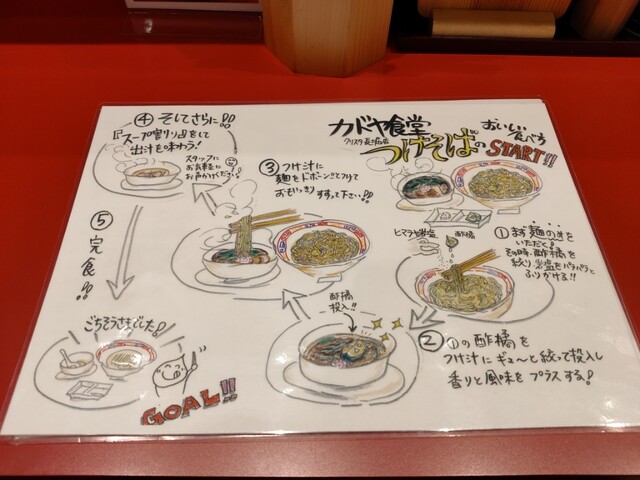 カドヤ食堂
クリスタ長堀店
つけそばの
おいしい
食べ方
START!!
ヒマラヤ岩塩
酢橘
① まず麺のみを
いただく!
その時、酢橘を
絞り岩塩をパラパラと
ふりかける!!
② ①の酢橘を
つけ汁にギューと絞って投入し
香りと風味をプラスする!
酢橘
投入!!
③ つけ汁に
麺をドボーン!!とつけて
おもいっきりすすって下さい!!
④ そしてさらに!!
『スープ割り』をして
出汁を味わう!
スタッフに
お気軽に
お声がけください!
⑤ 完食!!
ごちそうさまでした!
GOAL!!